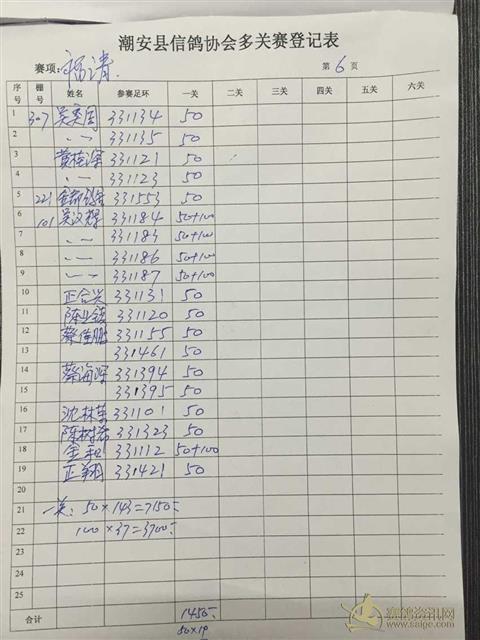 潮安县信鸽协会多关赛登记表
赛项: 福清. 第 6 页
序号 棚号 姓名 参赛足环 一关 二关 三关 四关 五关 六关
1 307 吴奕国 331134 50
2 〃 331135 50
3 黄桂深 331121 50
4 〃 331123 50
5 221 331553 50
6 101 吴汉辉 331184 50+100
7 〃 331183 50+100
8 〃 331186 50+100
9 〃 331187 50+100
10 正合兴 331131 50
11 331120 50
12 蔡佳鹏 331155 50
13 331461 50
14 蔡海深 331394 50
15 331395 50
16 沈林荣 331101 50
17 陈树希 331323 50
18 金和 331112 50+100
19 正翔 331421 50
20
21 一关: 50×143=7150-
22 100×37=3700-
23
24
25
合计 1450-
50×19
赛鸽资讯网
www.saige.com